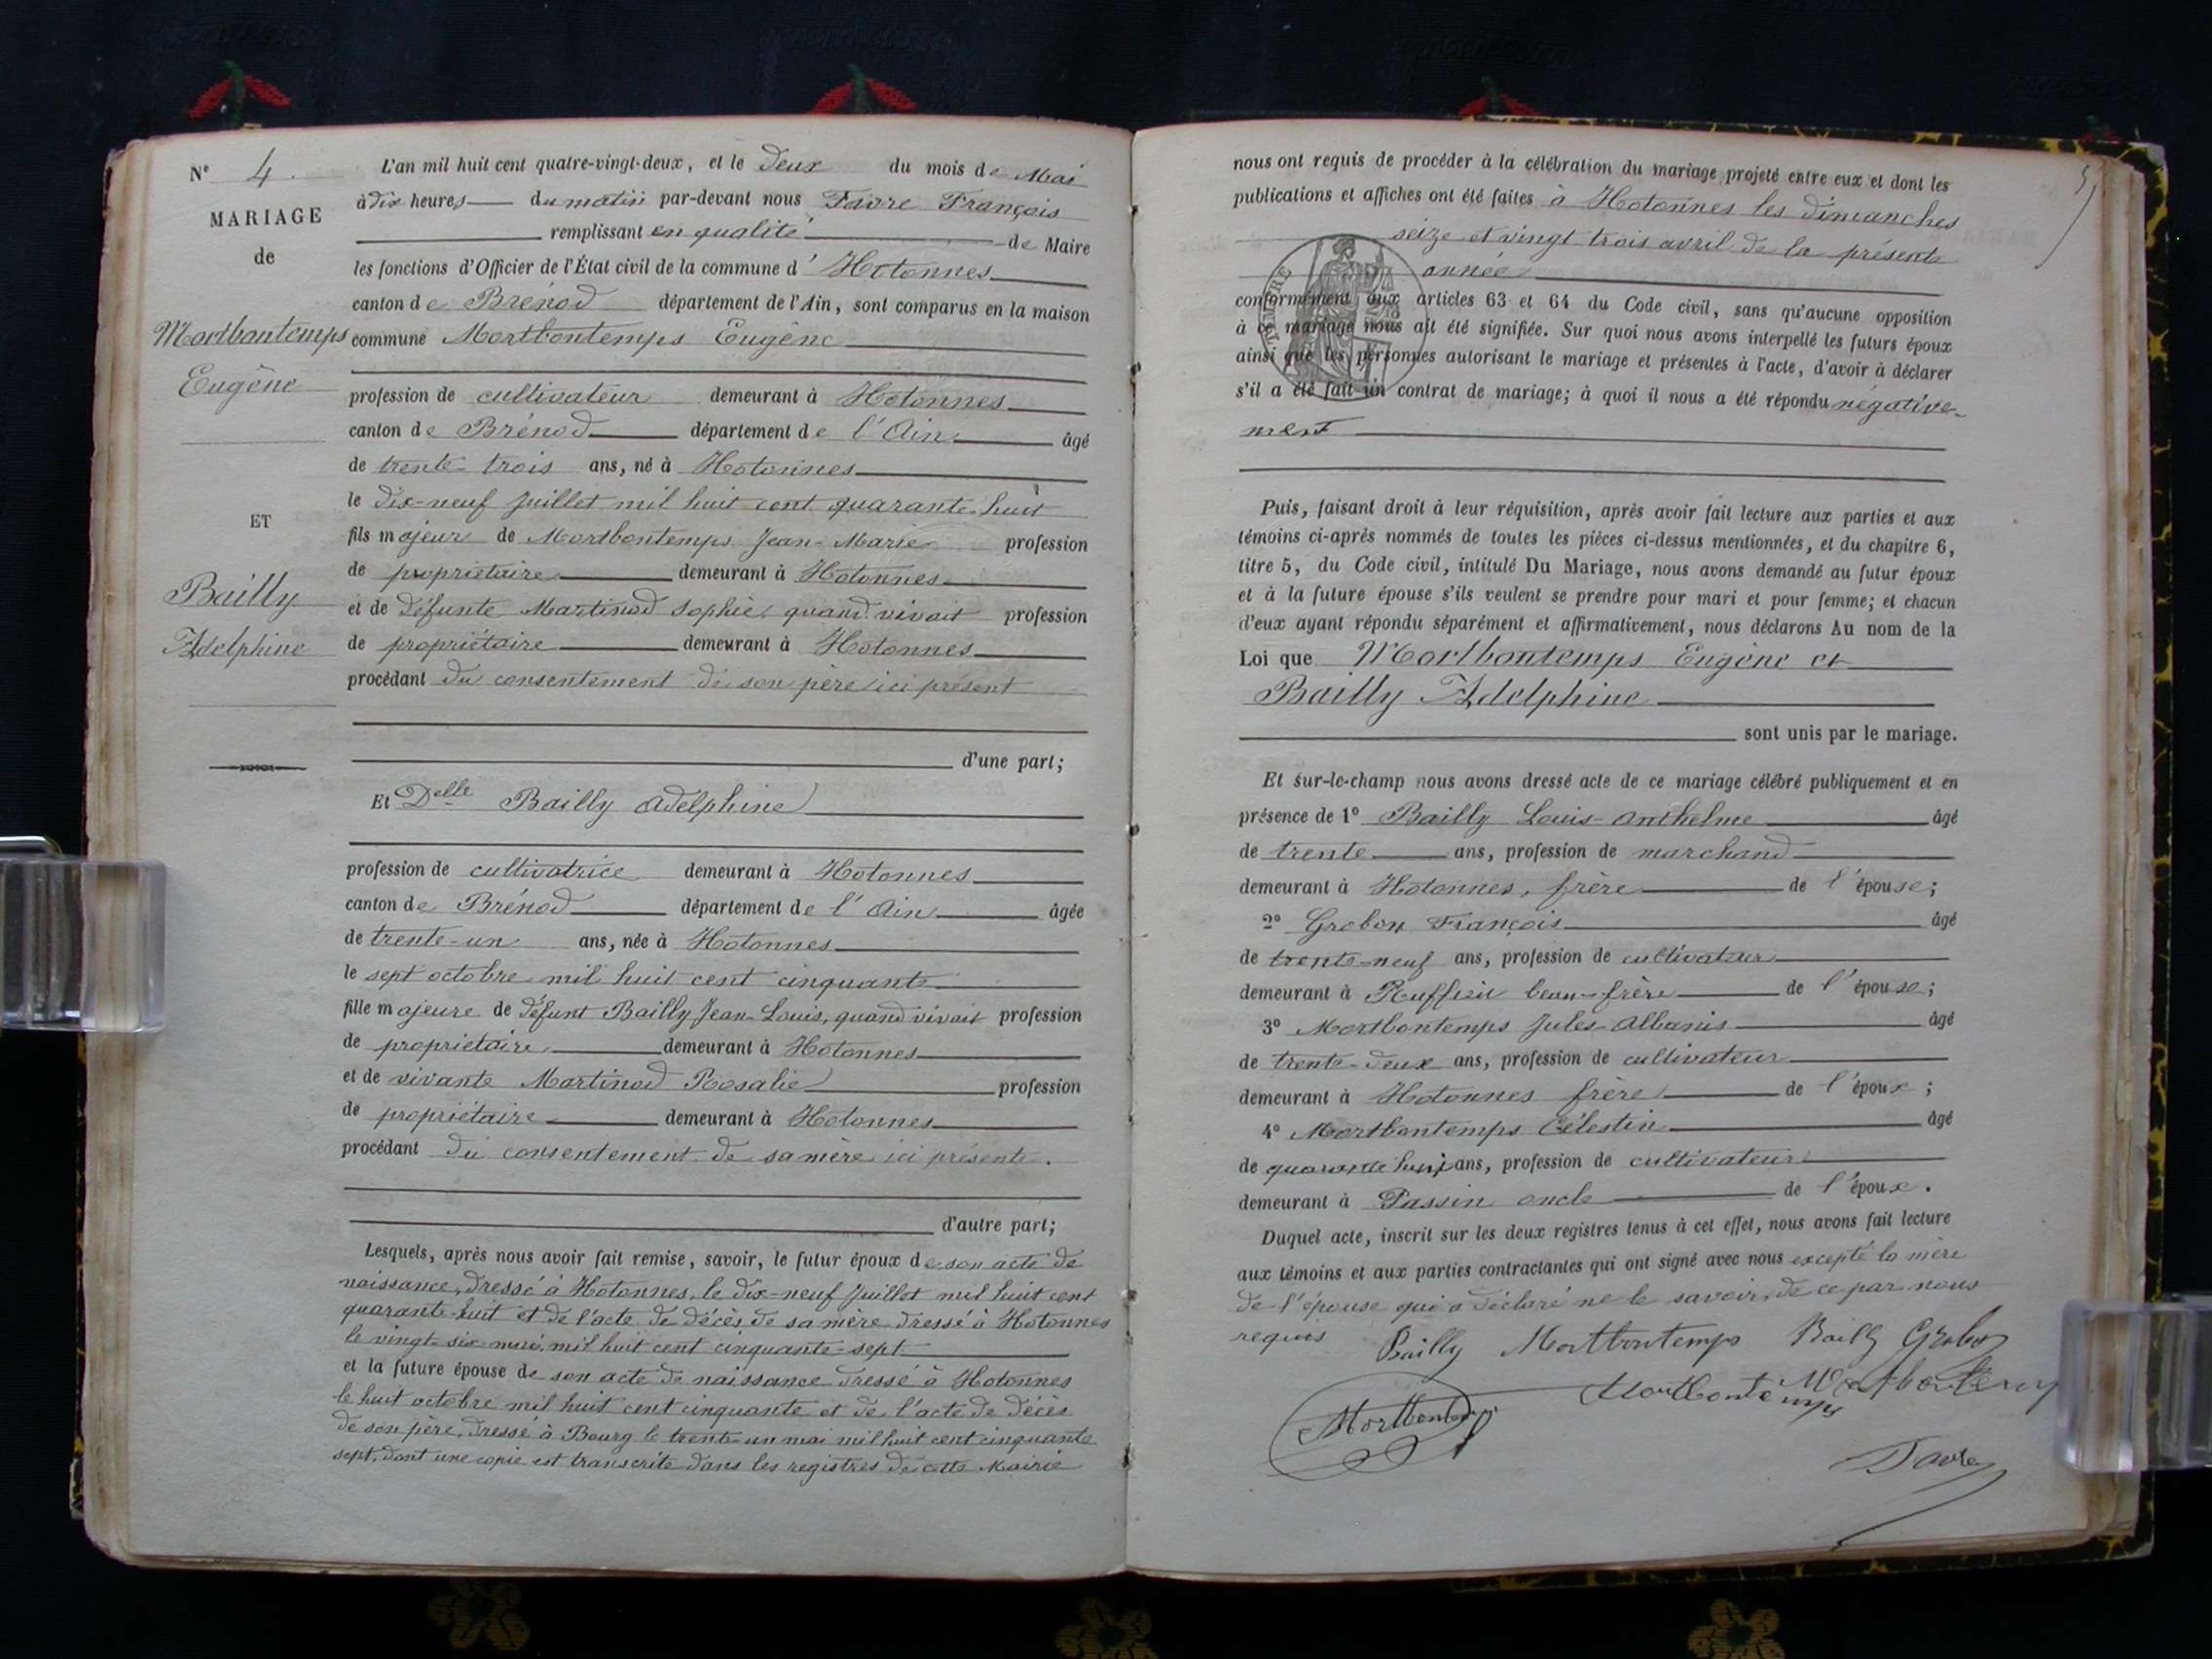 N° 4
MARIAGE
de
Mortbontemps
Eugène
ET
Bailly
Adelphine
L'an mil huit cent quatre-vingt-deux, et le deux du mois de Mai
à dix heures du matin par-devant nous Favre François
remplissant en qualité de Maire
les fonctions d'Officier de l'État civil de la commune d'Hotonnes
canton de Brénod département de l'Ain, sont comparus en la maison
commune Mortbontemps Eugène
profession de cultivateur demeurant à Hotonnes
canton de Brénod département de l'Ain âgé
de trente trois ans, né à Hotonnes
le dix-neuf Juillet mil huit cent quarante-huit
fils majeur de Mortbontemps Jean-Marie profession
de propriétaire demeurant à Hotonnes
et de défunte Martinod Sophie, quand vivait profession
de propriétaire demeurant à Hotonnes
procédant du consentement de son père ici présent
d'une part;
Et Delle Bailly Adelphine
profession de cultivatrice demeurant à Hotonnes
canton de Brénod département de l'Ain âgée
de trente-un ans, née à Hotonnes
le sept octobre mil huit cent cinquante
fille majeure de défunt Bailly Jean-Louis, quand vivait profession
de propriétaire demeurant à Hotonnes
et de vivante Martinod Rosalie profession
de propriétaire demeurant à Hotonnes
procédant du consentement de sa mère ici présente.
d'autre part;
Lesquels, après nous avoir fait remise, savoir, le futur époux de son acte de
naissance, dressé à Hotonnes, le dix-neuf Juillet mil huit cent
quarante-huit et de l'acte de décès de sa mère dressé à Hotonnes
le vingt-six mai mil huit cent cinquante-sept
et la future épouse de son acte de naissance dressé à Hotonnes
le huit octobre mil huit cent cinquante et de l'acte de décès
de son père, dressé à Bourg le trente-un mai mil huit cent cinquante
sept, dont une copie est transcrite dans les registres de cette Mairie
5
nous ont requis de procéder à la célébration du mariage projeté entre eux et dont les
publications et affiches ont été faites à Hotonnes les dimanches
seize et vingt trois avril de la présente
année
TIMBRE
conformément aux articles 63 et 64 du Code civil, sans qu'aucune opposition
à ce mariage nous ait été signifiée. Sur quoi nous avons interpellé les futurs époux
ainsi que les personnes autorisant le mariage et présentes à l'acte, d'avoir à déclarer
s'il a été fait un contrat de mariage; à quoi il nous a été répondu négative-
ment
Puis, faisant droit à leur réquisition, après avoir fait lecture aux parties et aux
témoins ci-après nommés de toutes les pièces ci-dessus mentionnées, et du chapitre 6,
titre 5, du Code civil, intitulé Du Mariage, nous avons demandé au futur époux
et à la future épouse s'ils veulent se prendre pour mari et pour femme; et chacun
d'eux ayant répondu séparément et affirmativement, nous déclarons Au nom de la
Loi que Mortbontemps Eugène et
Bailly Adelphine
sont unis par le mariage.
Et sur-le-champ nous avons dressé acte de ce mariage célébré publiquement et en
présence de 1° Bailly Louis-Anthelme âgé
de trente ans, profession de marchand
demeurant à Hotonnes, frère de l'épouse;
2° Grobon François âgé
de trente-neuf ans, profession de cultivateur
demeurant à Ruffieu beau-frère de l'épouse;
3° Mortbontemps Jules-Albanis âgé
de trente-deux ans, profession de cultivateur
demeurant à Hotonnes frère de l'époux;
4° Mortbontemps Célestin âgé
de quarante huit ans, profession de cultivateur
demeurant à Passin oncle de l'époux.
Duquel acte, inscrit sur les deux registres tenus à cet effet, nous avons fait lecture
aux témoins et aux parties contractantes qui ont signé avec nous excepté la mère
de l'épouse qui a déclaré ne le savoir, de ce par nous
requis
Bailly Mortbontemps Bailly Grobon
Mortbontemps Mortbontemps Mortbontemps
Favre